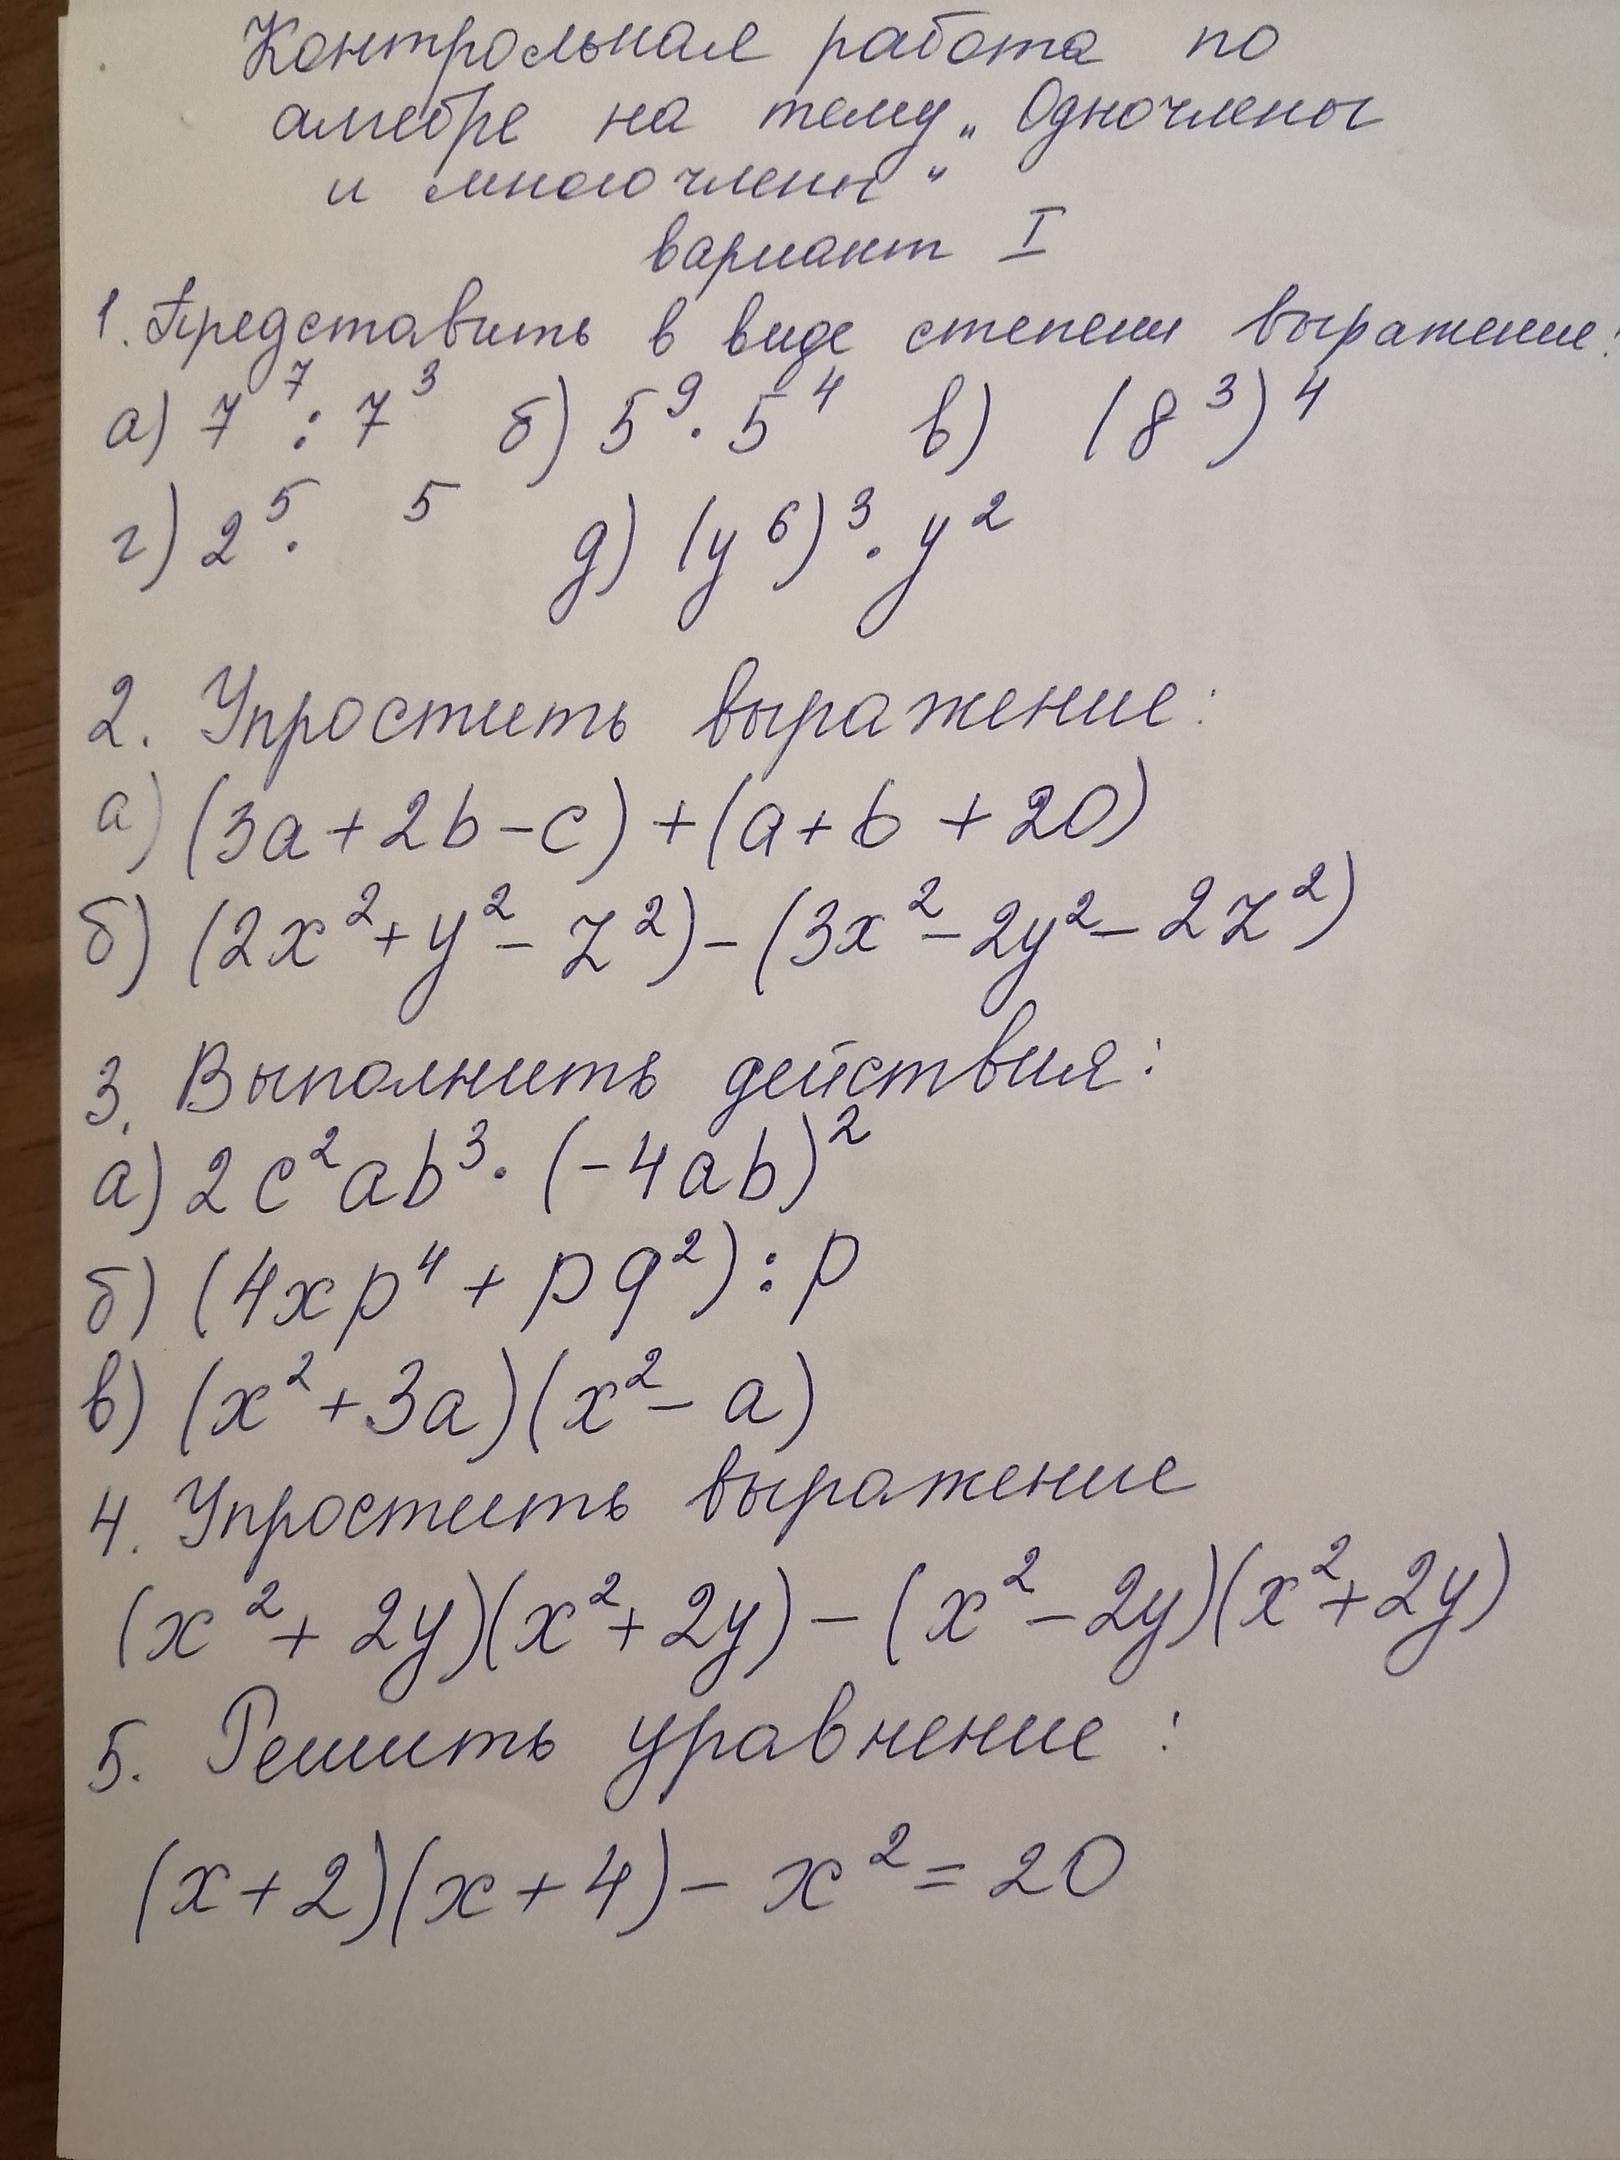 Контрольная работа по
алгебре на тему „Одночлены
и многочлены“
вариант I
1. Представить в виде степени выражение:
а) 7⁷ : 7³ б) 5⁹ · 5⁴ в) (8³)⁴
г) 2⁵ · ⁵ д) (y⁶)³ · y²
2. Упростить выражение:
а) (3a + 2b - c) + (a + b + 20)
б) (2x² + y² - z²) - (3x² - 2y² - 2z²)
3. Выполнить действия:
а) 2c²ab³ · (-4ab)²
б) (4xp⁴ + pq²) : p
в) (x² + 3a)(x² - a)
4. Упростить выражение
(x² + 2y)(x² + 2y) - (x² - 2y)(x² + 2y)
5. Решить уравнение :
(x + 2)(x + 4) - x² = 20